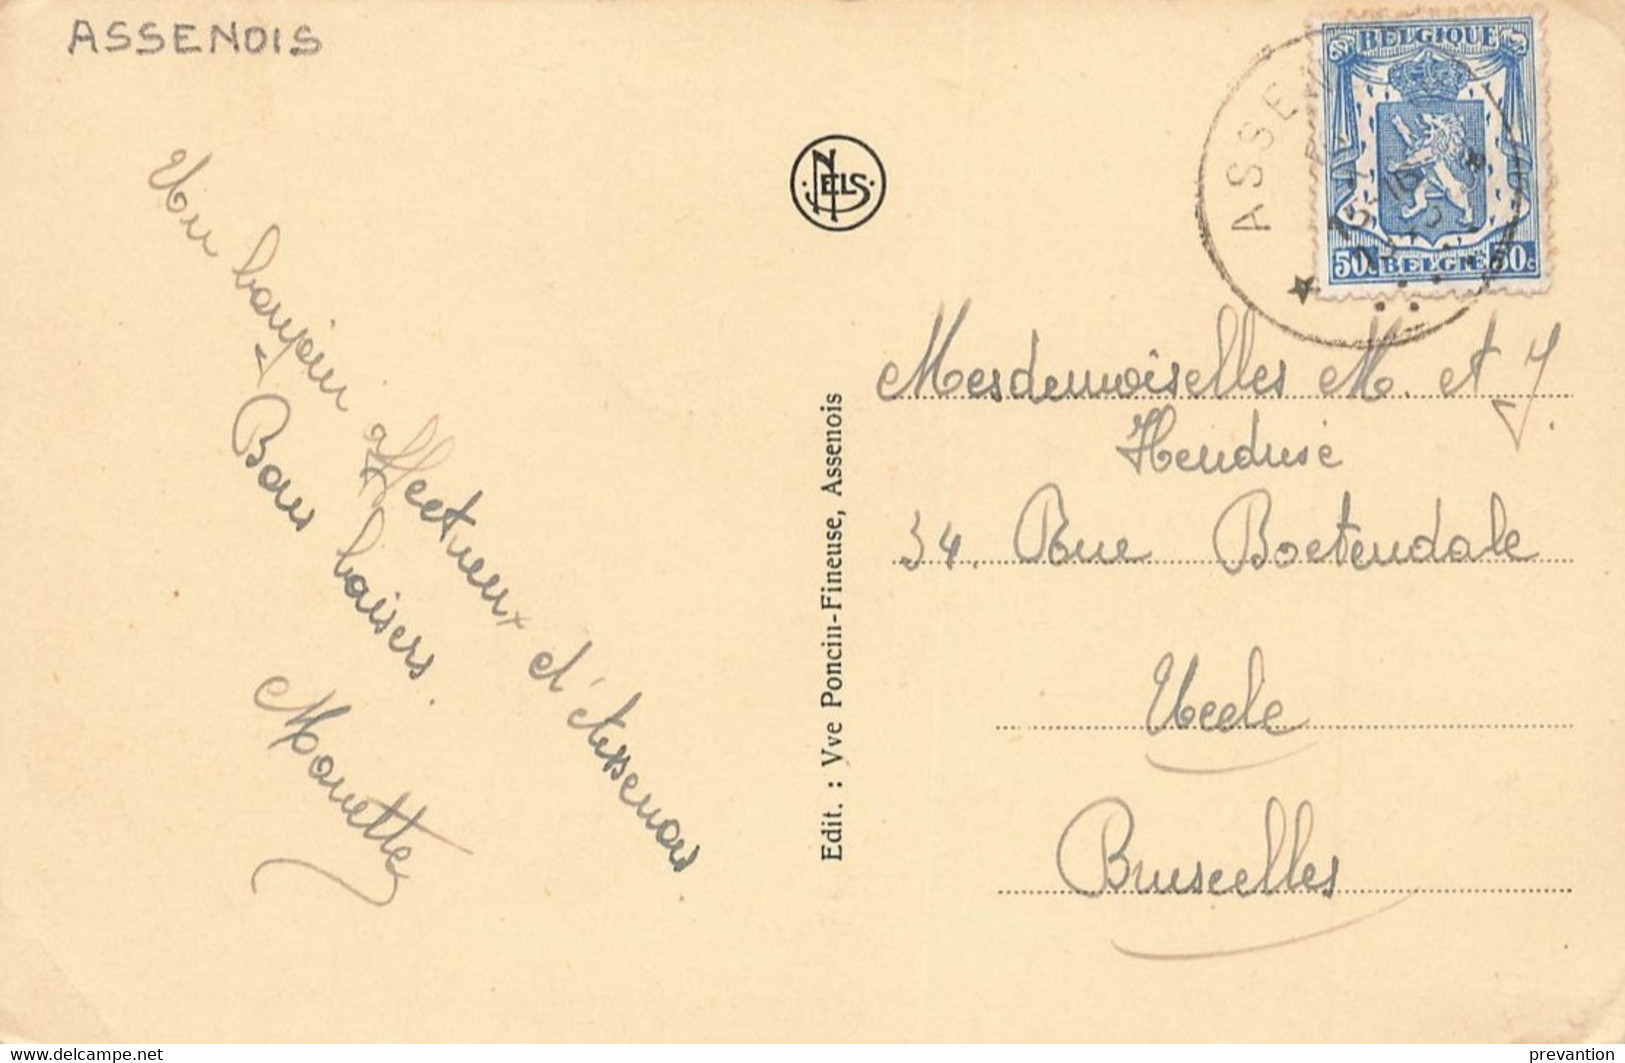 ASSENOIS
Un bonjour
affectueux d'Assenois
Bons baisers.
Monette
NELS
Edit. : Vve Poncin-Fineuse, Assenois
BELGIQUE
50c BELGIË 50c
ASSEN
Mesdemoiselles M. et J.
34. Rue Boetendale
Uccle
Bruxelles
www.delcampe.net
prevantion